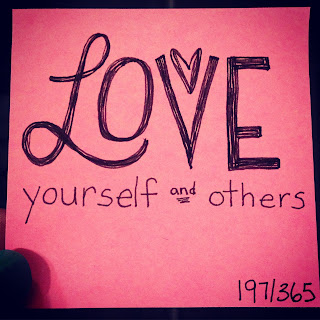 LOVE
yourself and others
197/365